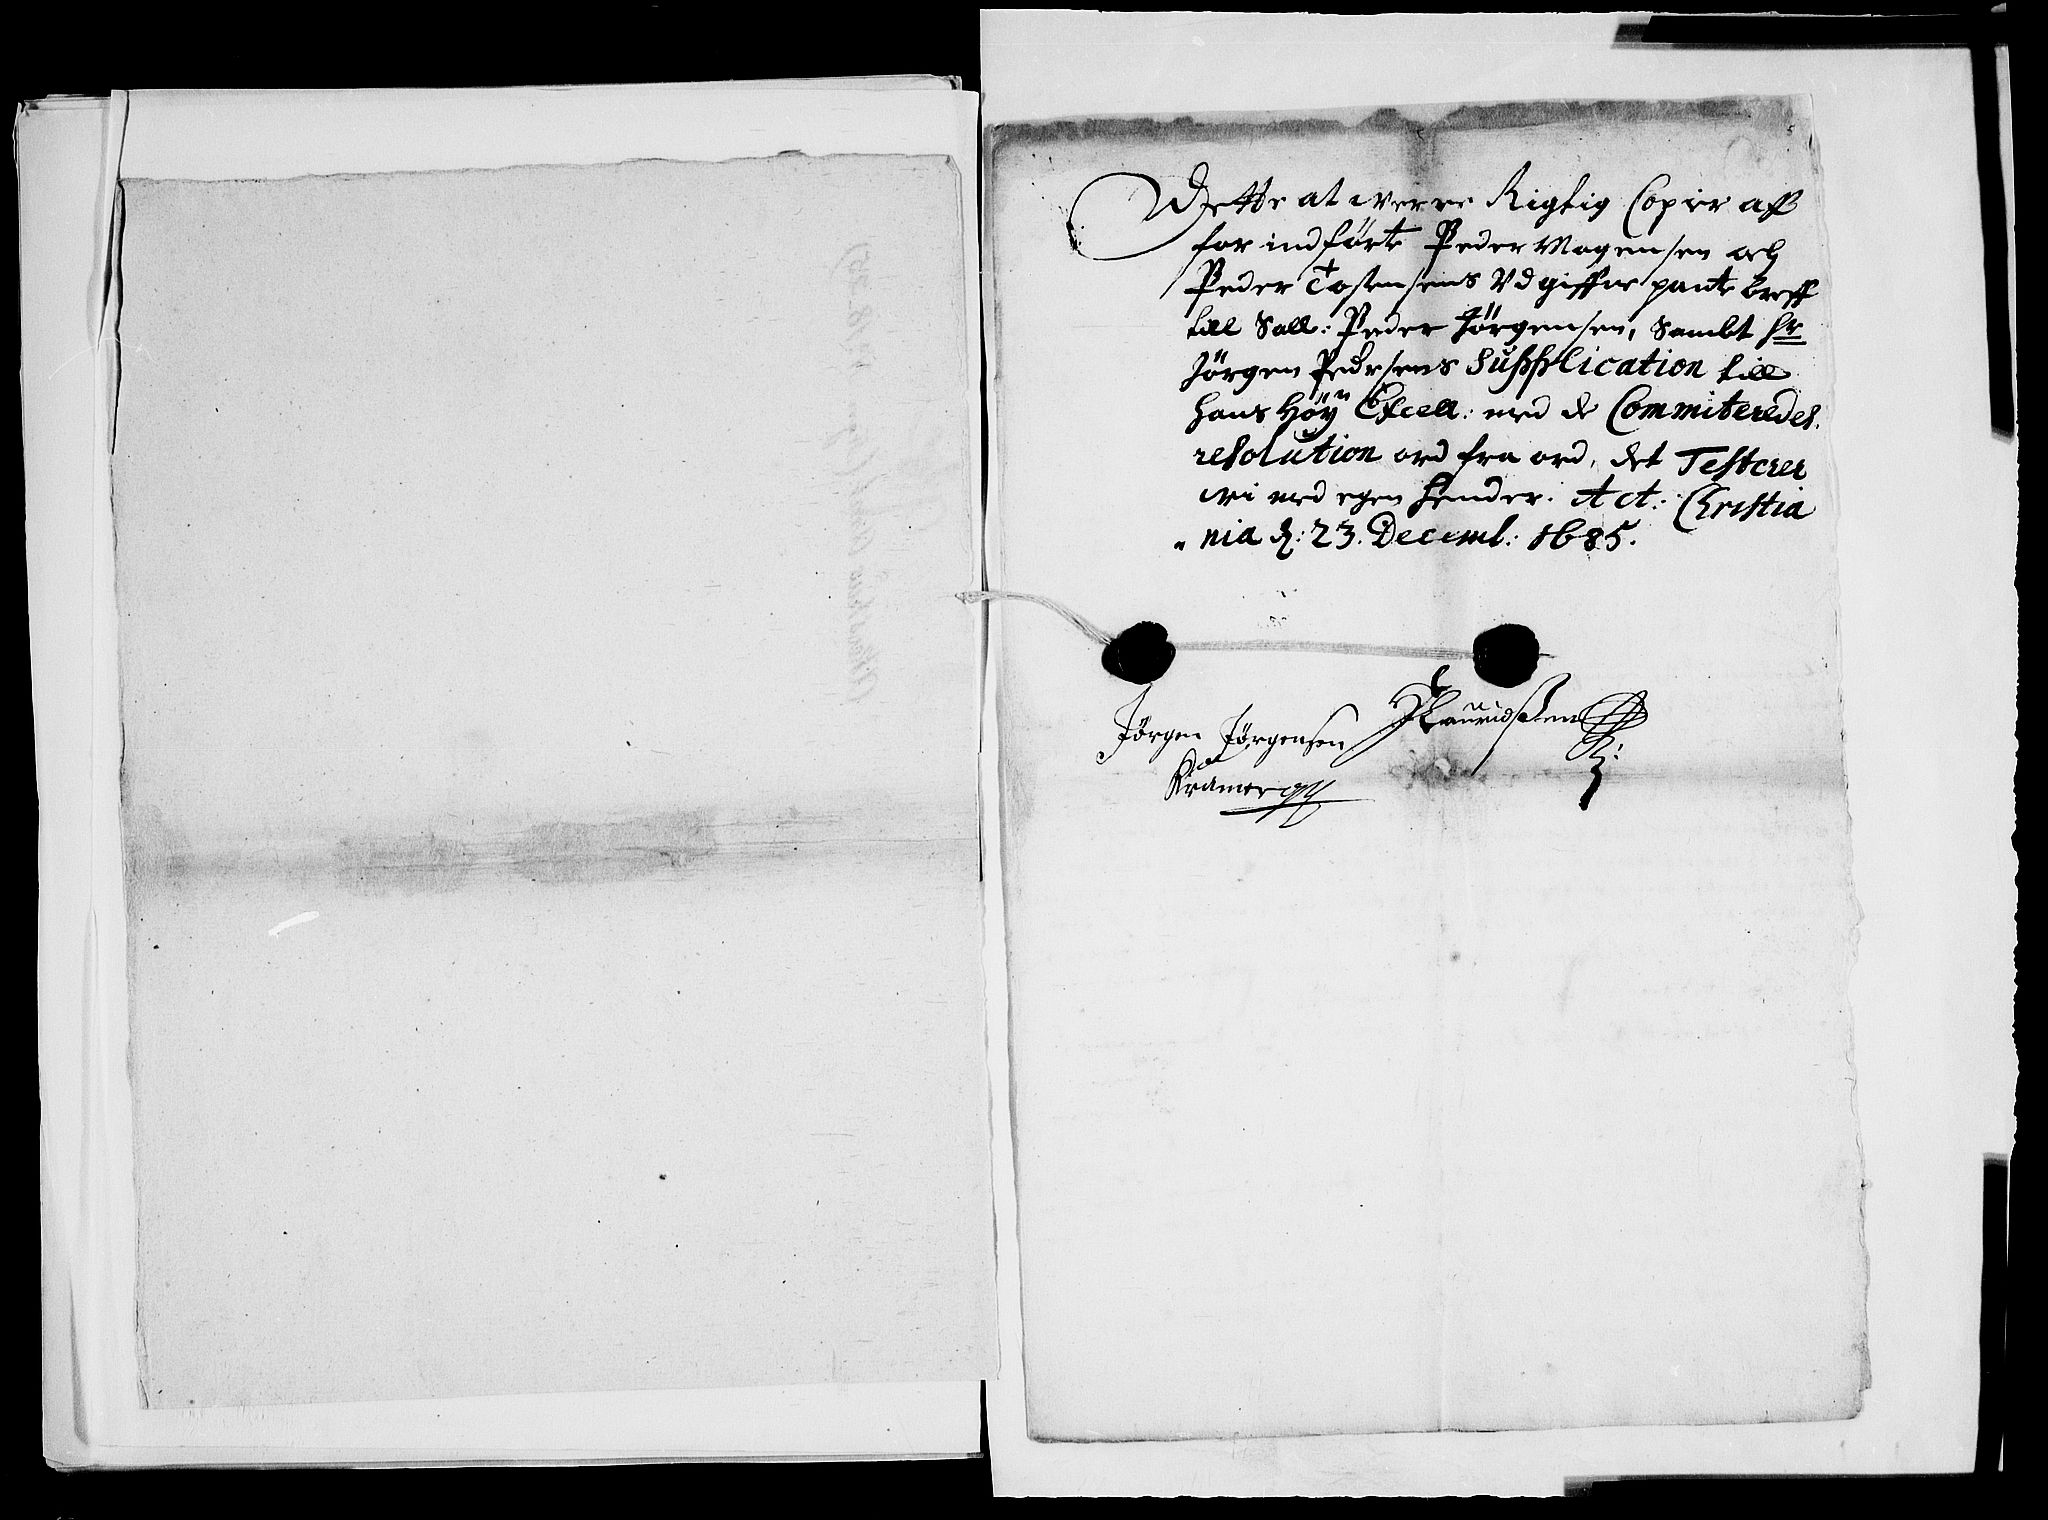 Dette at verre Rigtig Copier aff
for indförte Peder Mogensen och
Peder Tostensens Udgiffne pante breff
till Sall: Peder Jörgensen, Sambt hr
Jörgen Pedersens Supplication till
hans Höy Excell: med de Commiteredes
resolution ord fra ord, det Testerer
wi med egen hender. Act: Christia
"nia d: 23. Decembr: 1685.
Jörgen Jörgensen
Kramer
Lauridssen